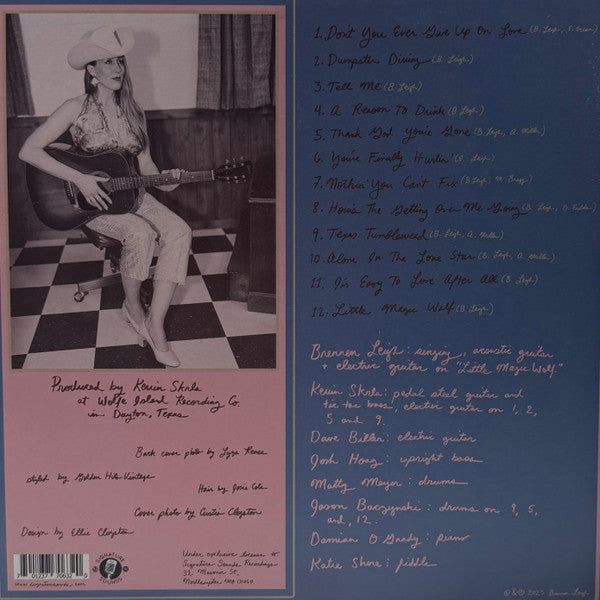 1. Don't You Ever Give Up On Love (B. Leigh,
2. Dumpster Diving (B. Leigh)
3. Tell Me (B. Leigh)
4. A Reason To Drink (B. Leigh)
5. Thank God You're Gone (B. Leigh, A. Miller)
6. You're Finally Hurtin' (B. Leigh)
7. Nothin' You Can't Fix (B. Leigh, M. Bragg)
8. How's The Getting Over Me Going (B. Leigh,
9. Texas Tumbleweed (B. Leigh, A. Miller)
10. Alone In The Lone Star (B. Leigh, A. Miller)
11. I's Easy To Love After All (B. Leigh)
12. Little Magic Wolf (B. Leigh)
Brennen Leigh: singing, acoustic guitar
+ electric guitar on "Little Magic Wolf."
Kevin Skrla: pedal steel guitar and
tic tac bass, electric guitar on 1, 2,
5 and 9.
Dave Biller: electric guitar
Josh Hoag: upright bass
Matty Meyer: drums
Jason Baczynski: drums on 4, 5,
and, 12.
Damian O Grady: piano
Katie Shore: fiddle
Produced by Kevin Skrla
at Wolfe Island Recording Co.
in Dayton, Texas
Back cover photo by Lyza Renee
styled by Golden Hits Vintage
Hair by Joxie Cole
Cover photo by Curtis Clogston
Design by Ellie Clogston
7 01237 70632 0
SIGNATURE SOUNDS
Under exclusive license to
Signature Sounds Recordings
32 Masonic St,
Northampton MA 01060
℗&© 2025 Brennen Leigh